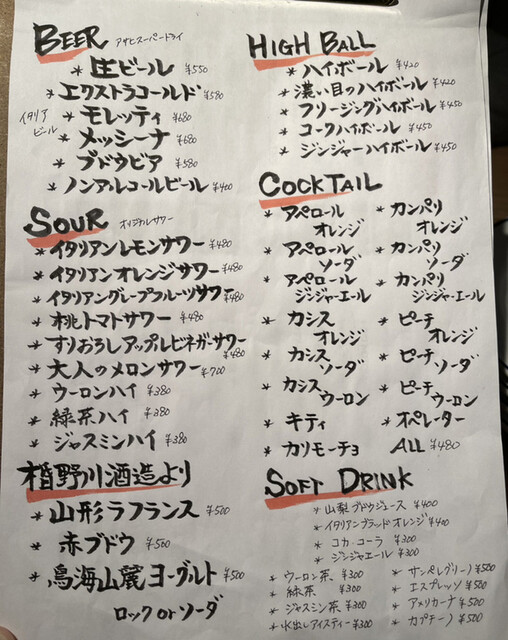 BEER アサヒスーパードライ
* 生ビール ¥550
* エクストラコールド ¥580
イタリアビール
* モレッティ ¥680
* メッシーナ ¥680
* ブドウビア ¥580
* ノンアルコールビール ¥400
SOUR オリジナルサワー
* イタリアンレモンサワー ¥480
* イタリアンオレンジサワー ¥480
* イタリアングレープフルーツサワー ¥480
* 桃トマトサワー ¥480
* すりおろしアップルビネガーサワー ¥480
* 大人のメロンサワー ¥700
* ウーロンハイ ¥380
* 緑茶ハイ ¥380
* ジャスミンハイ ¥380
楯野川酒造より
* 山形ラフランス ¥500
* 赤ブドウ ¥500
* 鳥海山麓ヨーグルト ¥500
ロック or ソーダ
HIGH BALL
* ハイボール ¥420
* 濃い目のハイボール ¥420
* フリージングハイボール ¥450
* コークハイボール ¥450
* ジンジャーハイボール ¥450
COCKTAIL
* アペロールオレンジ
* アペロールソーダ
* アペロールジンジャーエール
* カシスオレンジ
* カシスソーダ
* カシスウーロン
* キティ
* カリモーチョ
* カンパリオレンジ
* カンパリソーダ
* カンパリジンジャーエール
* ピーチオレンジ
* ピーチソーダ
* ピーチウーロン
* オペレーター
ALL ¥480
SOFT DRINK
* 山梨ブドウジュース ¥400
* イタリアンブラッドオレンジ ¥400
* コカ・コーラ ¥300
* ジンジャエール ¥300
* ウーロン茶 ¥300
* 緑茶 ¥300
* ジャスミン茶 ¥300
* 水出しアイスティー ¥300
* サンペレグリノ ¥500
* エスプレッソ ¥500
* アメリカーナ ¥500
* カプチーノ ¥500